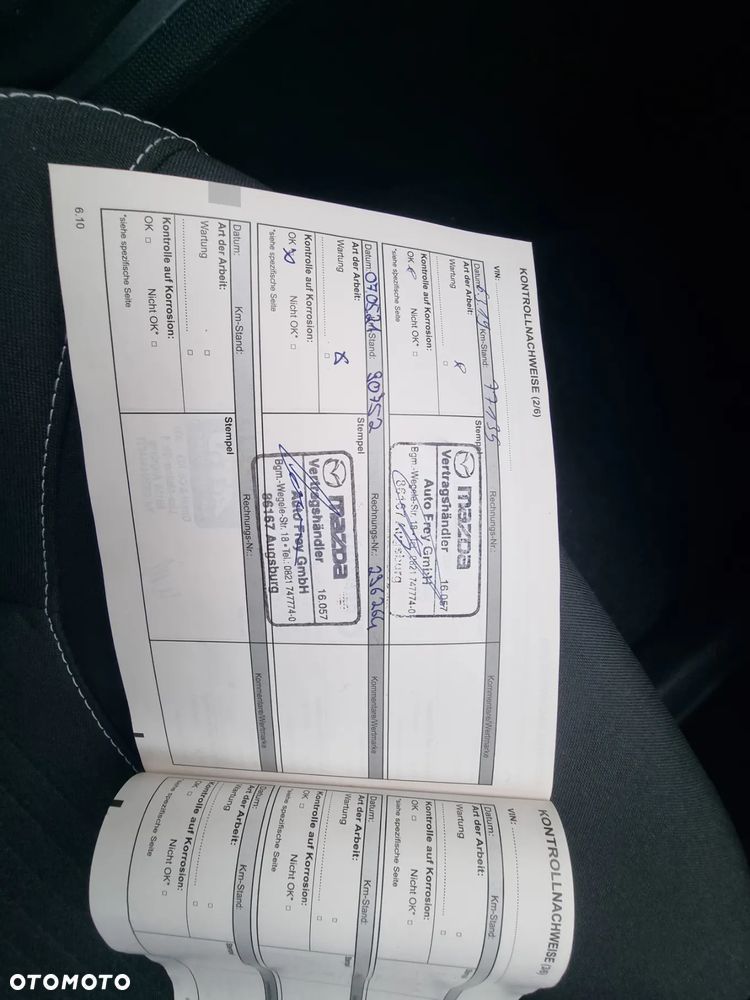 KONTROLLNACHWEISE (2/6)
VIN:
Datum: Km-Stand: 77135 Rechnungs-Nr.: Kommentare/Wertmarke
Art der Arbeit:
Wartung
Kontrolle auf Korrosion:
OK Nicht OK*
*siehe spezifische Seite
Stempel
mazda
Vertragshändler 16.057
Auto Frey GmbH
Bgm.-Wegele-Str. 18 0821 747774-0
86167 Augsburg
Datum: 070521 Stand: 90752 Rechnungs-Nr.: 296264 Kommentare/Wertmarke
Art der Arbeit:
Wartung
Kontrolle auf Korrosion:
OK Nicht OK*
*siehe spezifische Seite
Stempel
mazda
Vertragshändler 16.057
Auto Frey GmbH
Bgm.-Wegele-Str. 18 • Tel.: 0821 747774-0
86167 Augsburg
Datum: Km-Stand: Rechnungs-Nr.: Kommentare/Wertmarke
Art der Arbeit:
Wartung
Kontrolle auf Korrosion:
OK Nicht OK*
*siehe spezifische Seite
Stempel
6.10
KONTROLLNACHWEISE (3/6)
VIN:
Datum: Km-Stand:
Art der Arbeit:
Wartung
Kontrolle auf Korrosion:
OK Nicht OK*
*siehe spezifische Seite
Datum: Km-Stand:
Art der Arbeit:
Wartung
Kontrolle auf Korrosion:
OK Nicht OK*
*siehe spezifische Seite
Datum: Km-Stand:
Art der Arbeit:
Wartung
Kontrolle auf Korrosion:
OK Nicht OK*
*siehe spezifische Seite
OTOMOTO